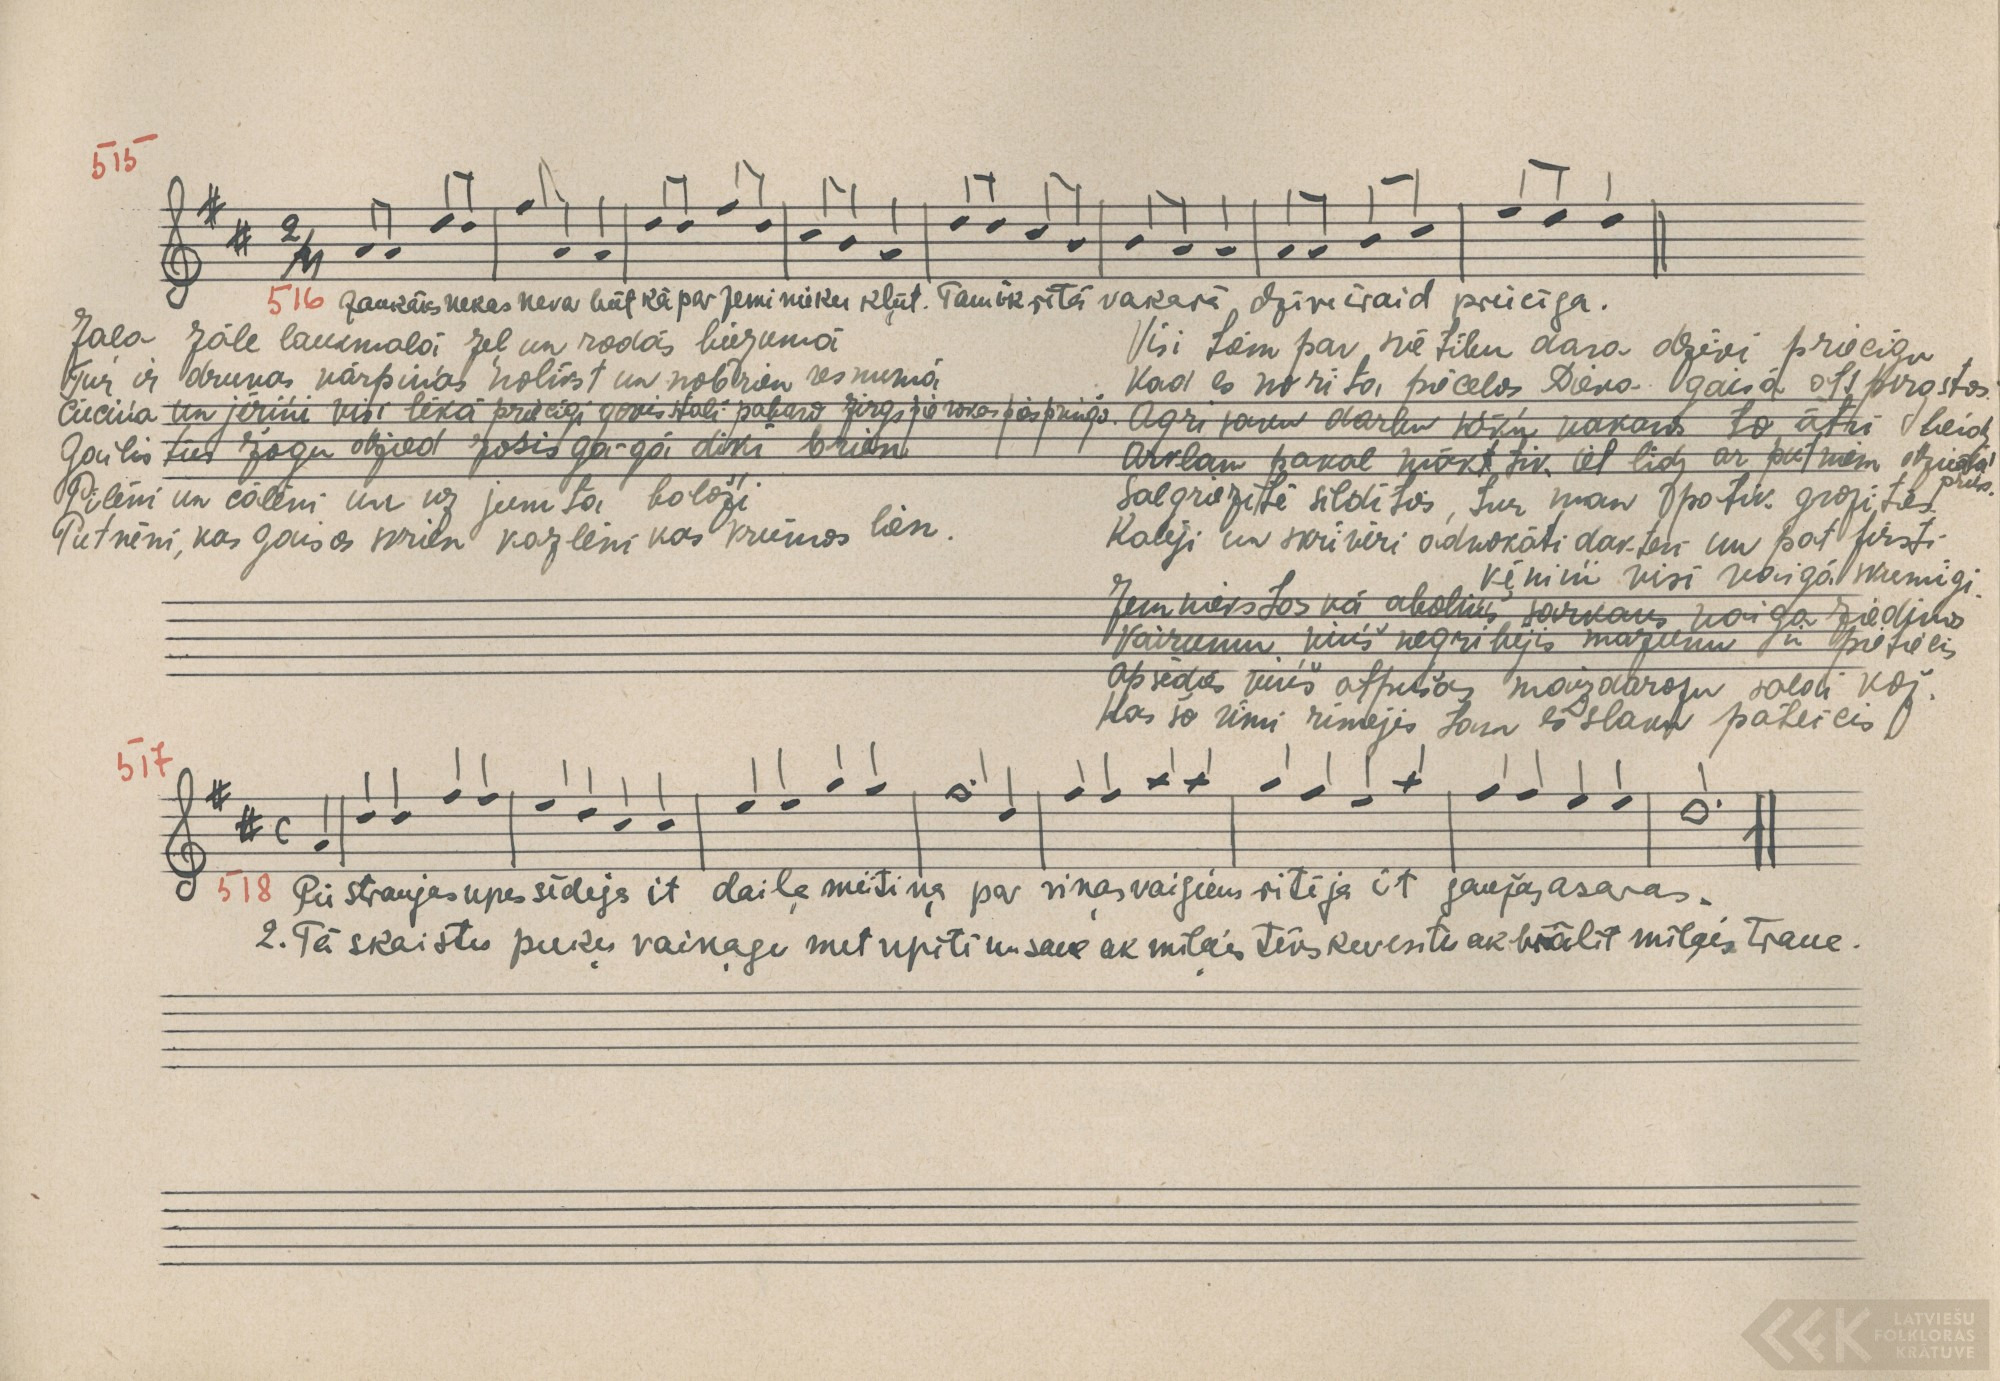 515
2/4
516 Jaukāks nekas nevar būt kā par zemnieku kļūt. Tam ik rītā vakarā dzīve iraid priecīga.
Zaļa zāle laukmalā zeļ un rodās biezumā
Tur ir druvas vārpiņas nolīkst un nobrien resnumā
Cūciņa un jēriņi visi lēkā priecīgi govis stalī pabaro zirgs pie rokas
Gailis tur zogu dzied zosis gā-gā dīķī brien
Pīlēni un cālēni un uz jumta baloži
Putnēni, kas gaisos skrien kazlēni kas krūmos lien.
Visi tam par svētību dara dzīvi priecīgu
Kad es no rīta pieceļos Dieva gaisā atspirgstos.
Agri savu darbu sāku vakaros to ātri beidz
Arklam pakaļ nākt tik iet līdz ar putniem dziedāt
prieks.
Saulgriezītē sildītos, tur man patīk grozīties.
Kalēji un skrīveri advokāti dakteri un pat firsti
ķēniņi visi vaigā skumīgi.
Zemnieks tas kā āboliņš sarkans vaigā ziediņos
Vairumu viņš negribējis mazumu ir pieticis
Apsēdās viņš atpūšas maizdarožu saldi kož.
Kas šo rīmi rīmējis tam es slavu pateicis
517
C
518 Pie straujas upes sēdēja it daiļa meitiņa par viņas vaigiem ritēja it gaužas asaras.
2. Tā skaistu puķu vaiņagu met upītī un sauc ak mīļais tēvs kur esi tu ak brālīt mīļais trauc.
LATVIEŠU
FOLKLORAS
KRĀTUVE